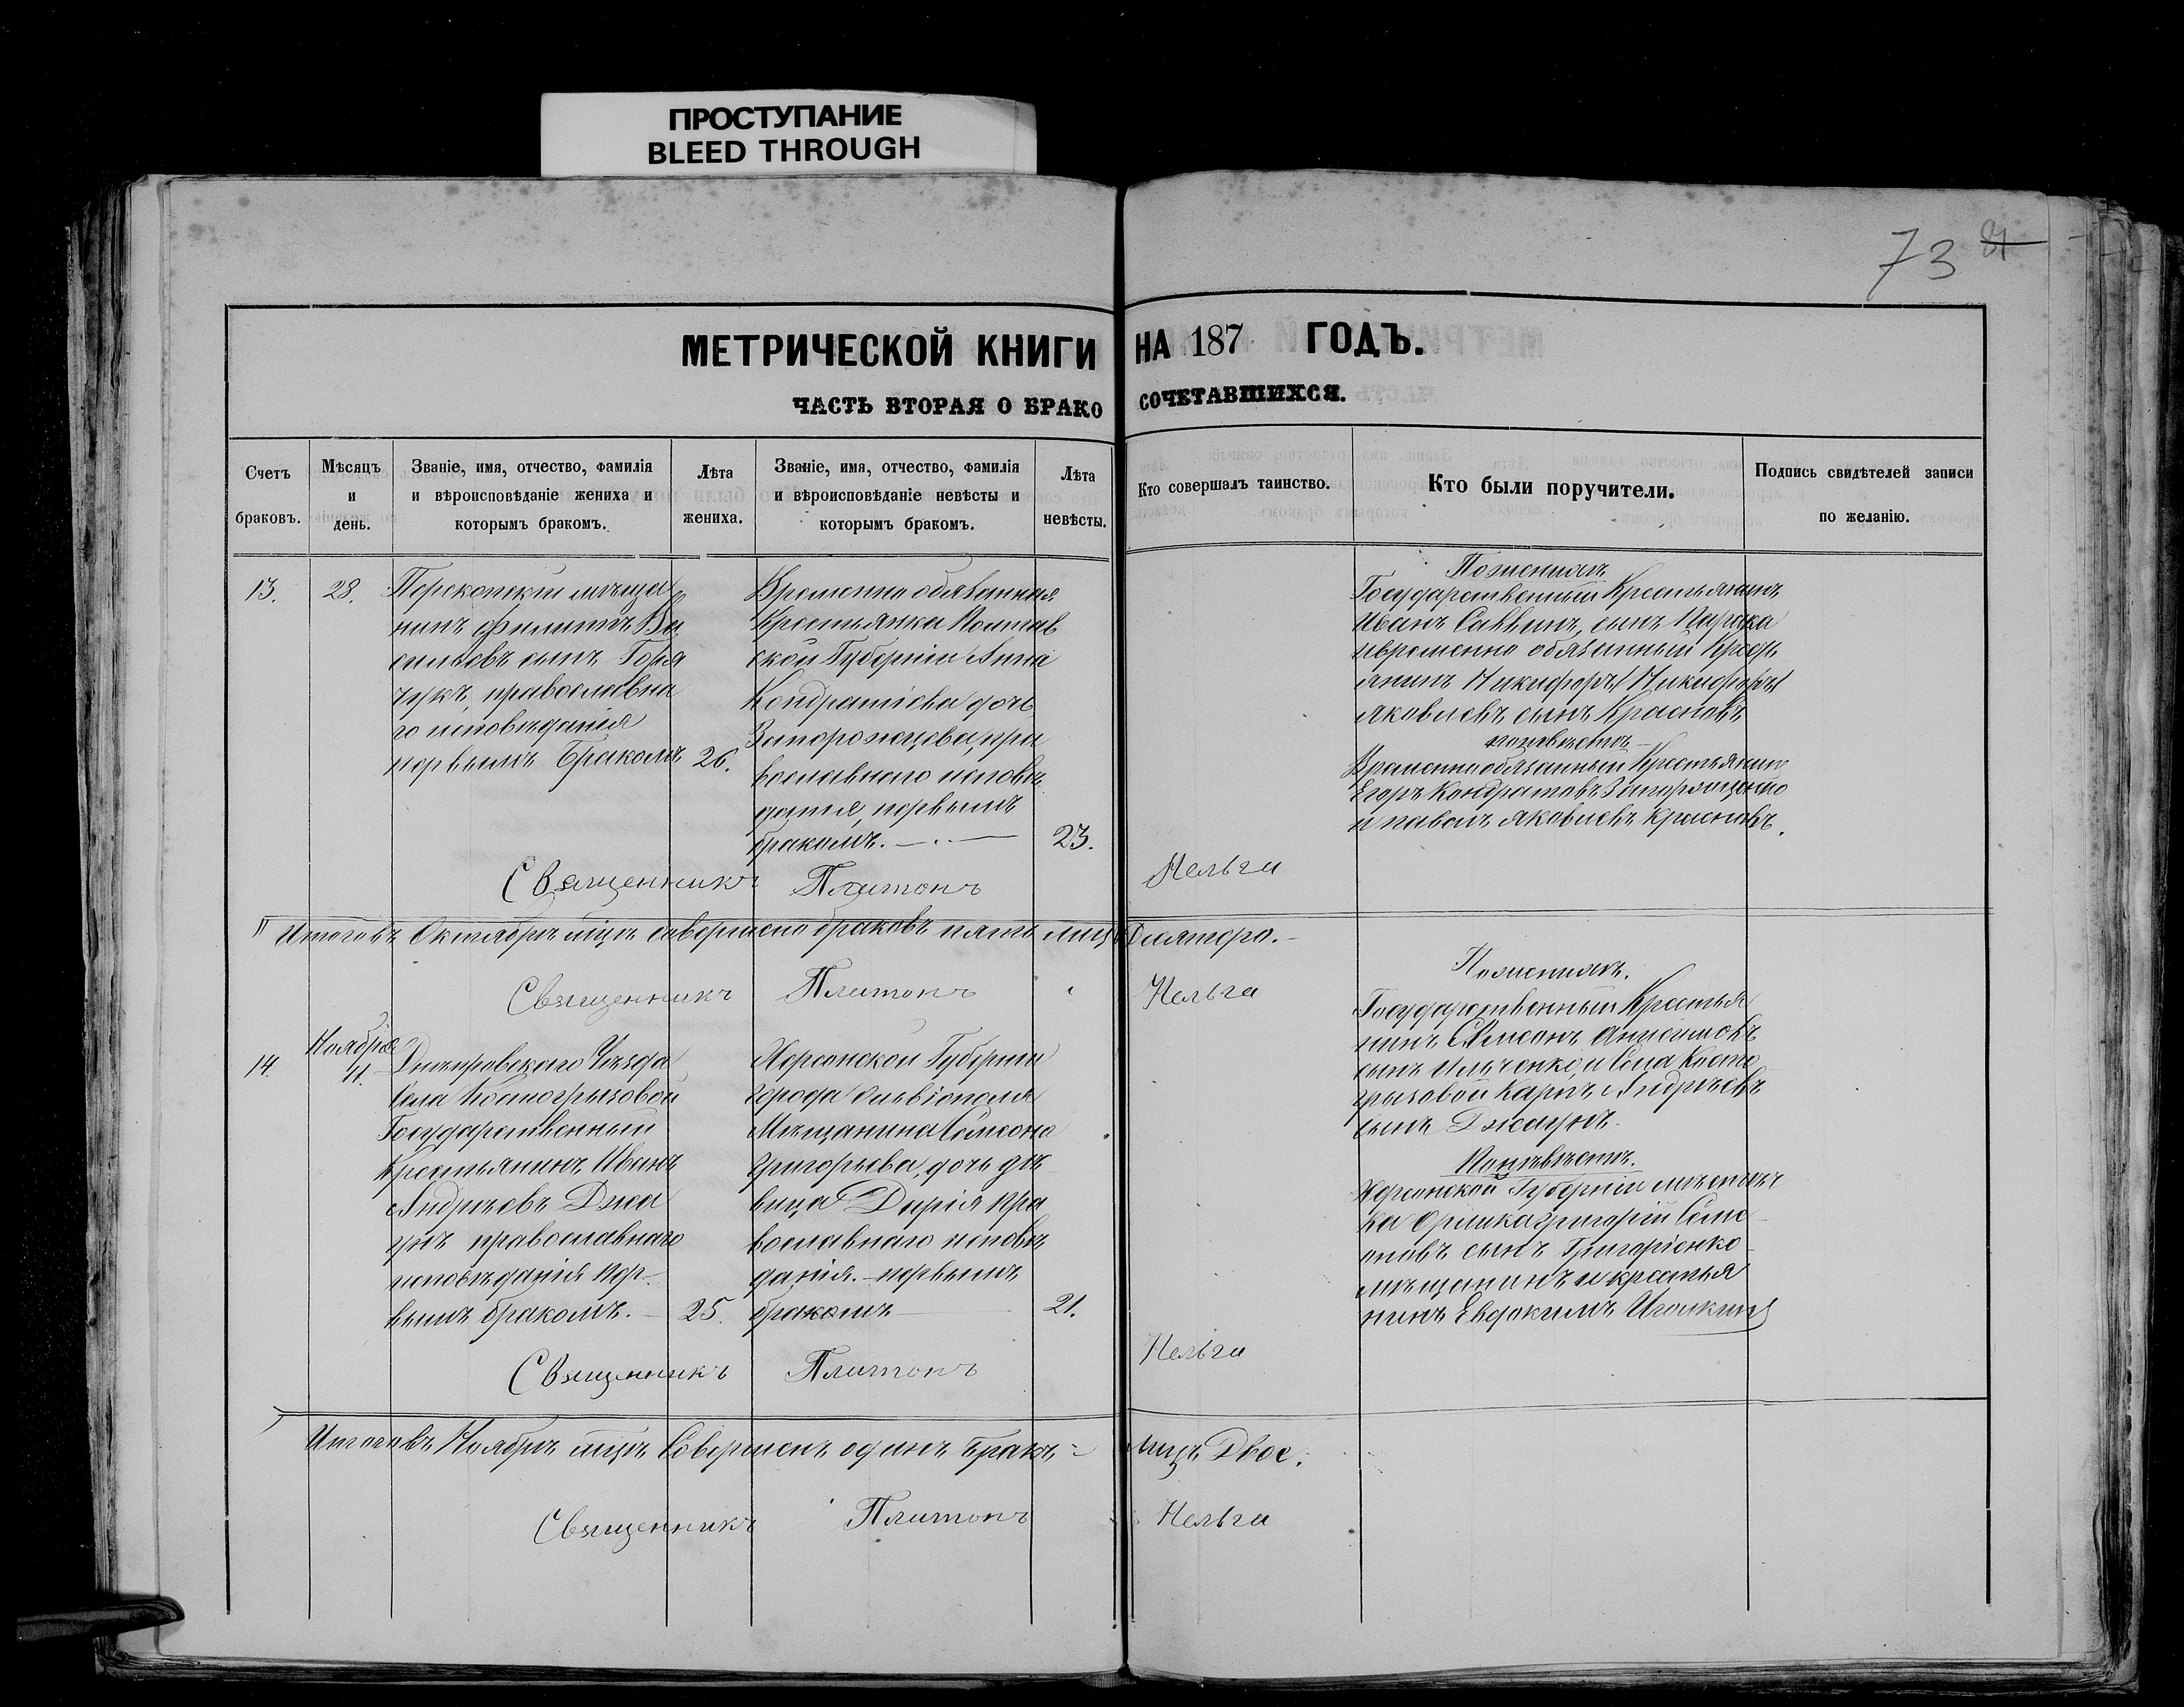 ПРОСТУПАНИЕ
BLEED THROUGH
73 81
МЕТРИЧЕСКОЙ КНИГИ НА 187 ГОДЪ.
ЧАСТЬ ВТОРАЯ О БРАКО СОЧЕТАВШИХСЯ.
Счетъ
браковъ.
Мѣсяцъ
и
день.
Званіе, имя, отчество, фамилія
и вѣроисповѣданіе жениха и
которымъ бракомъ.
Лѣта
жениха.
Званіе, имя, отчество, фамилія
и вѣроисповѣданіе невѣсты и
которымъ бракомъ.
Лѣта
невѣсты.
Кто совершалъ таинство.
Кто были поручители.
Подпись свидѣтелей записи
по желанію.
13.
28.
Перекопскій мѣща
нинъ Филиппъ Ва
сильевъ сынъ
православна
го исповѣданія
первымъ бракомъ
26.
Временно обязанная
Крестьянка Полтав
ской Губерніи Анна
Кондратіева дочь
Запорожцева, пра
вославного исповѣ
данія, первымъ
бракомъ.
23.
Поженихѣ
Государственный Крестьянинъ
Иванъ Саввинъ, сынъ
и временно обязанный Кресть
янинъ Никифоръ
Яковлевъ сынъ Красновъ
по невѣстѣ
Временнообязанный Крестьянинъ
Егоръ Кондратовъ
и Павелъ Яковлевъ Красновъ.
Священникъ Платонъ Нельга
Итого въ Октябрѣ мцѣ совершено браковъ пять лицъ Десятеро.
Священникъ Платонъ Нельга
14.
Ноября
11.
Днѣпровскаго Уѣзда
Села Костогрызовой
Государственный
Крестьянинъ Иванъ
Андреевъ Джа
гунъ православнаго
исповѣданія пер-
вымъ бракомъ.
25.
Херсонской Губерніи
города Ольвіополя
Мѣщанина Семена
Григорьева, дочь дѣ
вица Дарія пра
вославнаго исповѣ
данія. первымъ
бракомъ
21.
Поженихѣ.
Государственный Крестья
нинъ Симеонъ
сынъ Ильченко, и Села Косто
грызовой Карпъ Андреевъ
сынъ Джагунъ.
Поневѣстѣ.
Херсонской Губерніи мѣстеч
ка Орлика Григорій Семе
новъ сынъ Григоріенко
мѣщанинъ и крестья
нинъ Евдокимъ
Священникъ Платонъ Нельга
Итого въ Ноябрѣ мцѣ Совершенъ одинъ бракъ = лицъ Двое.
Священникъ Платонъ Нельга